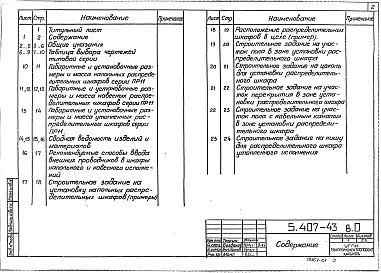 2
Лист Стр. Наименование Примечание
1 Титульный лист
1 2 Содержание
Общие указания
Таблица выбора чертежей
типовой серии
10 11 Габаритные и установочные раз-
меры и масса напольных распреде-
лительных шкафов серии ПРН
11,12 12,13 Габаритные и установочные раз-
меры и масса навесных распре-
делительных шкафов серии ПРН
13 14 Габаритные и установочные раз-
меры и масса утопленных рас-
пределительных шкафов серии
ПРН
14,15 15,16 Сводная ведомость изделий и
материалов
16 17 Рекомендуемые способы ввода
внешних проводников в шкафы
напольного и навесного исполне-
ний
17 18 Строительное задание на
установку напольных распре-
делительных шкафов (примеры)
Наименование Примечание
18 19 Расположение распределительных
шкафов в цехе (пример).
19 20 Строительное задание на учас-
ток пола в зоне установки рас-
пределительного шкафа
20 21 Строительное задание на цоколь
для установки распределитель-
ного шкафа
21 22 Строительное задание на участок
перекрытия в зоне уста-
новки распределительного шкафа
22 23 Строительное задание на участок
пола с кабельным каналом
в зоне установки распредели-
тельного шкафа
23 24 Строительное задание на нишу
для распределительного шкафа
утопленного исполнения
5.407-43 в.0
Содержание